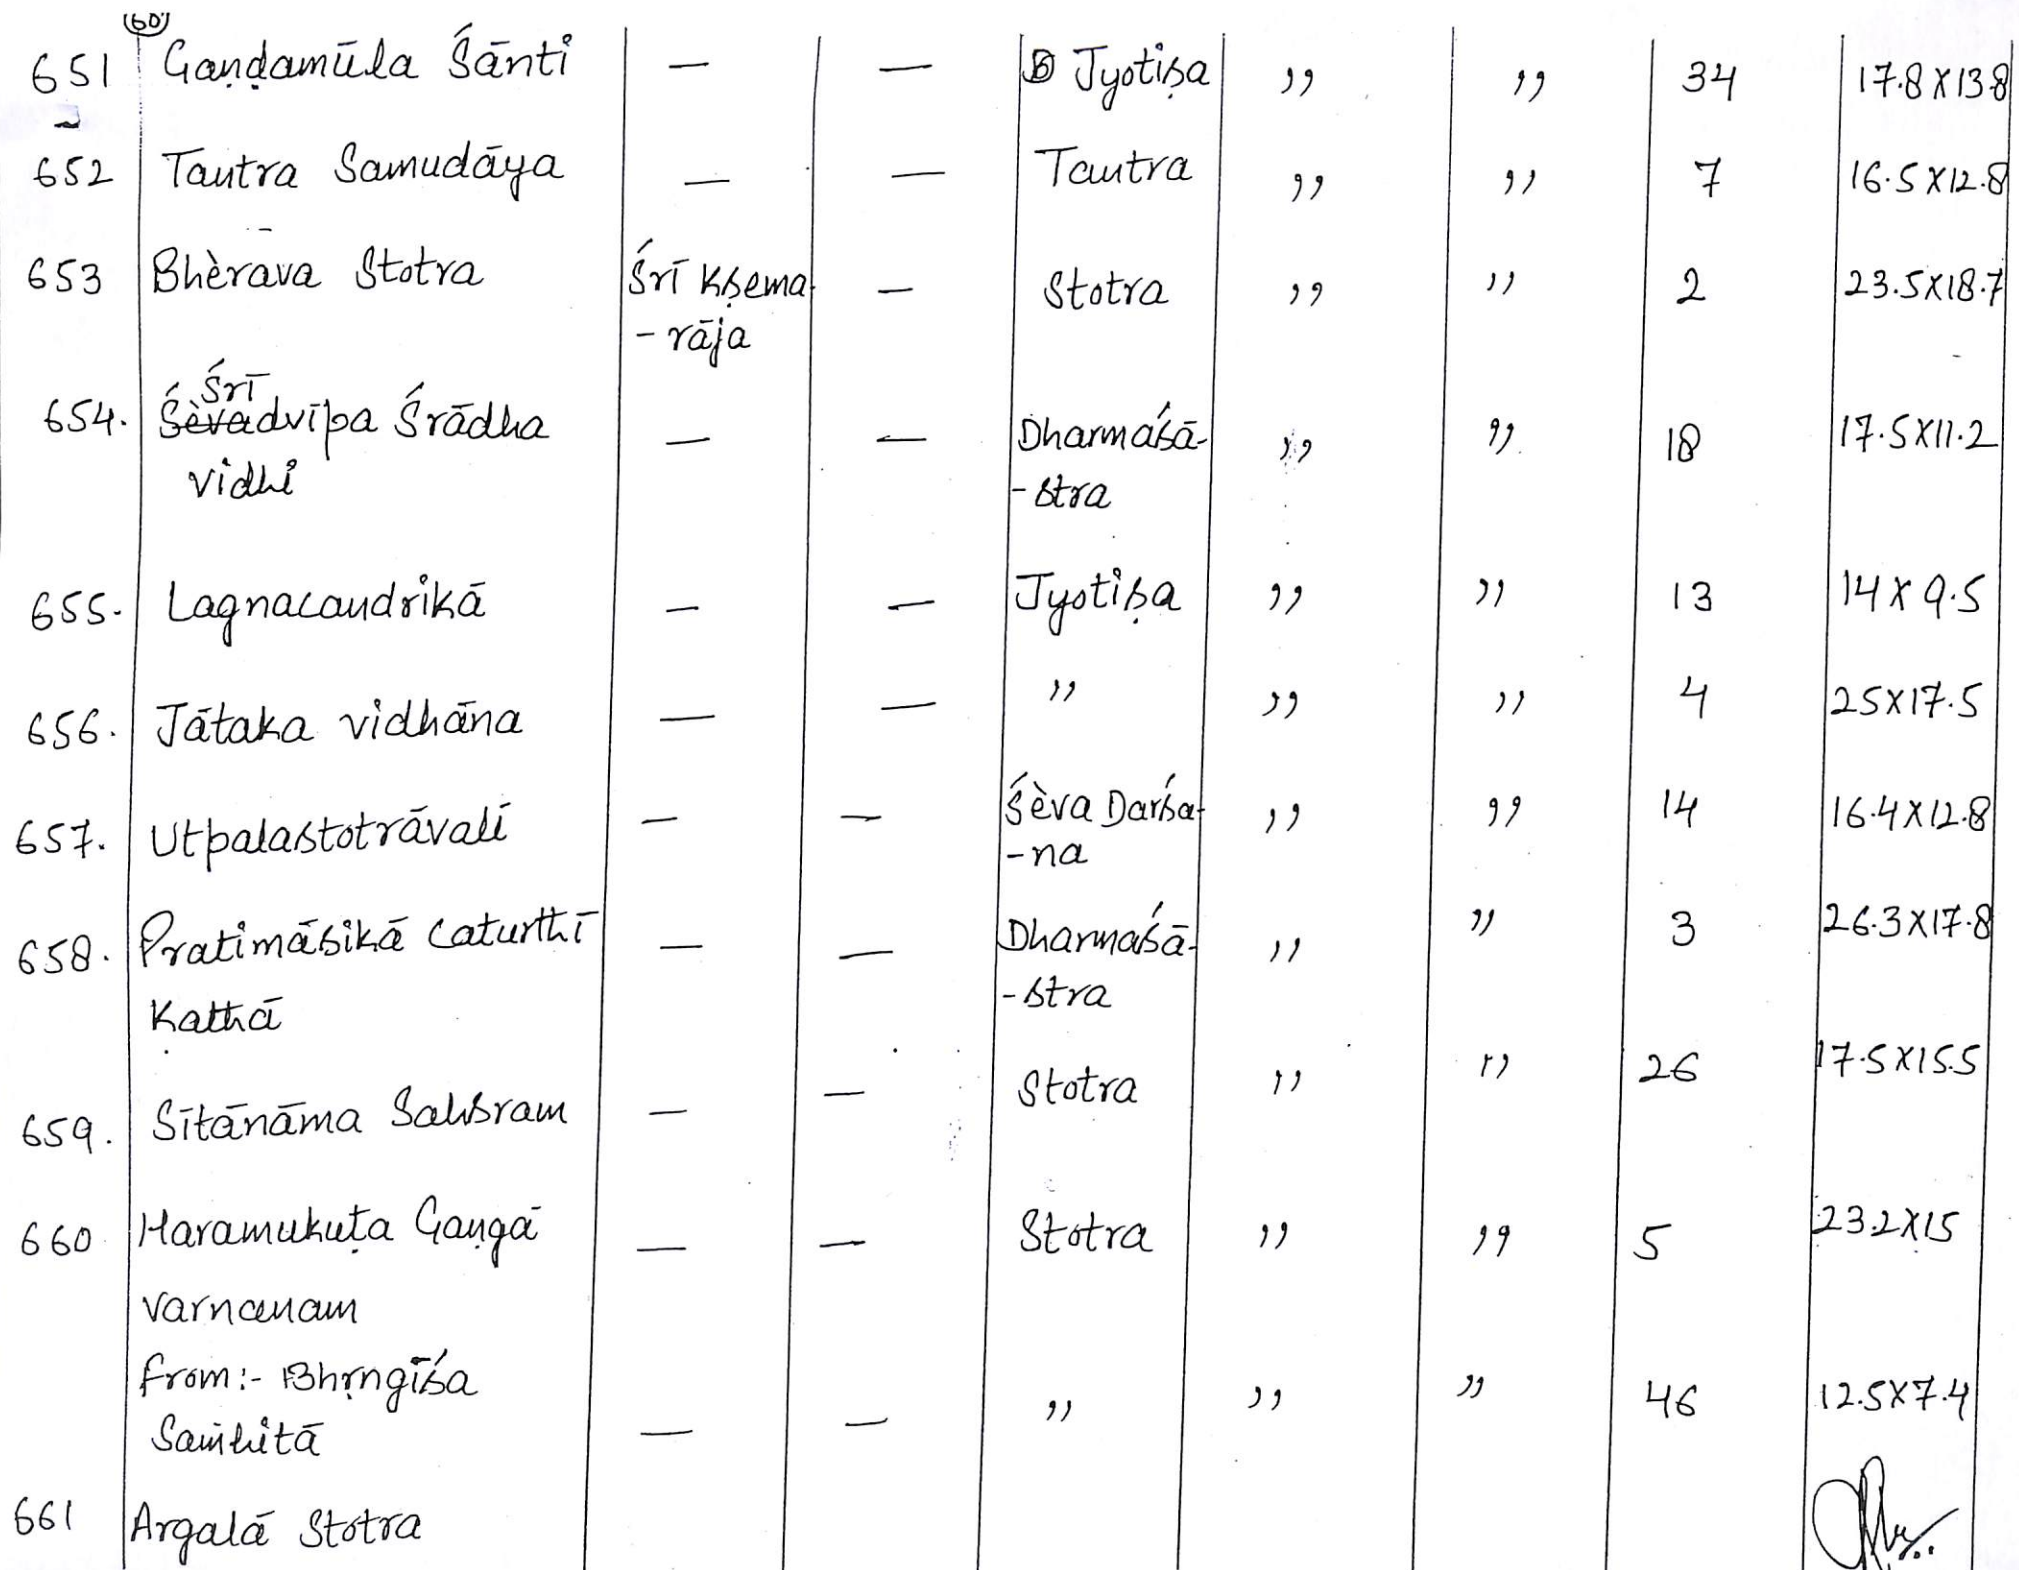 (60)
651 Gaṇḍamūla Śānti — — Jyotiṣa ,, ,, 34 17.8 X 13.8
652 Tantra Samudāya — — Tantra ,, ,, 7 16.5 X 12.8
653 Bhèrava Stotra Śrī Kṣema- — Stotra ,, ,, 2 23.5X18.7
-rāja
Śrī
654. Śèvadvīpa Śrādha — — Dharmaśā- ,, ,, 18 17.5X11.2
vidhi -stra
655. Lagnacandrikā — — Jyotiṣa ,, ,, 13 14 X 9.5
656. Jātaka vidhāna — — ,, ,, ,, 4 25X17.5
657. Utpalastotrāvalī — — Śèva Darśa- ,, ,, 14 16.4X12.8
-na
658. Pratimāsikā Caturthī — — Dharmaśā- ,, ,, 3 26.3X17.8
Kathā -stra
659. Sītānāma Sahsram — — Stotra ,, ,, 26 17.5X15.5
660 Haramukuṭa Gaṇgā — — Stotra ,, ,, 5 23.2X15
varnanam
from:- Bhṛngīśa
Saṁhitā — — ,, ,, ,, 46 12.5X7.4
661 Argalā Stotra